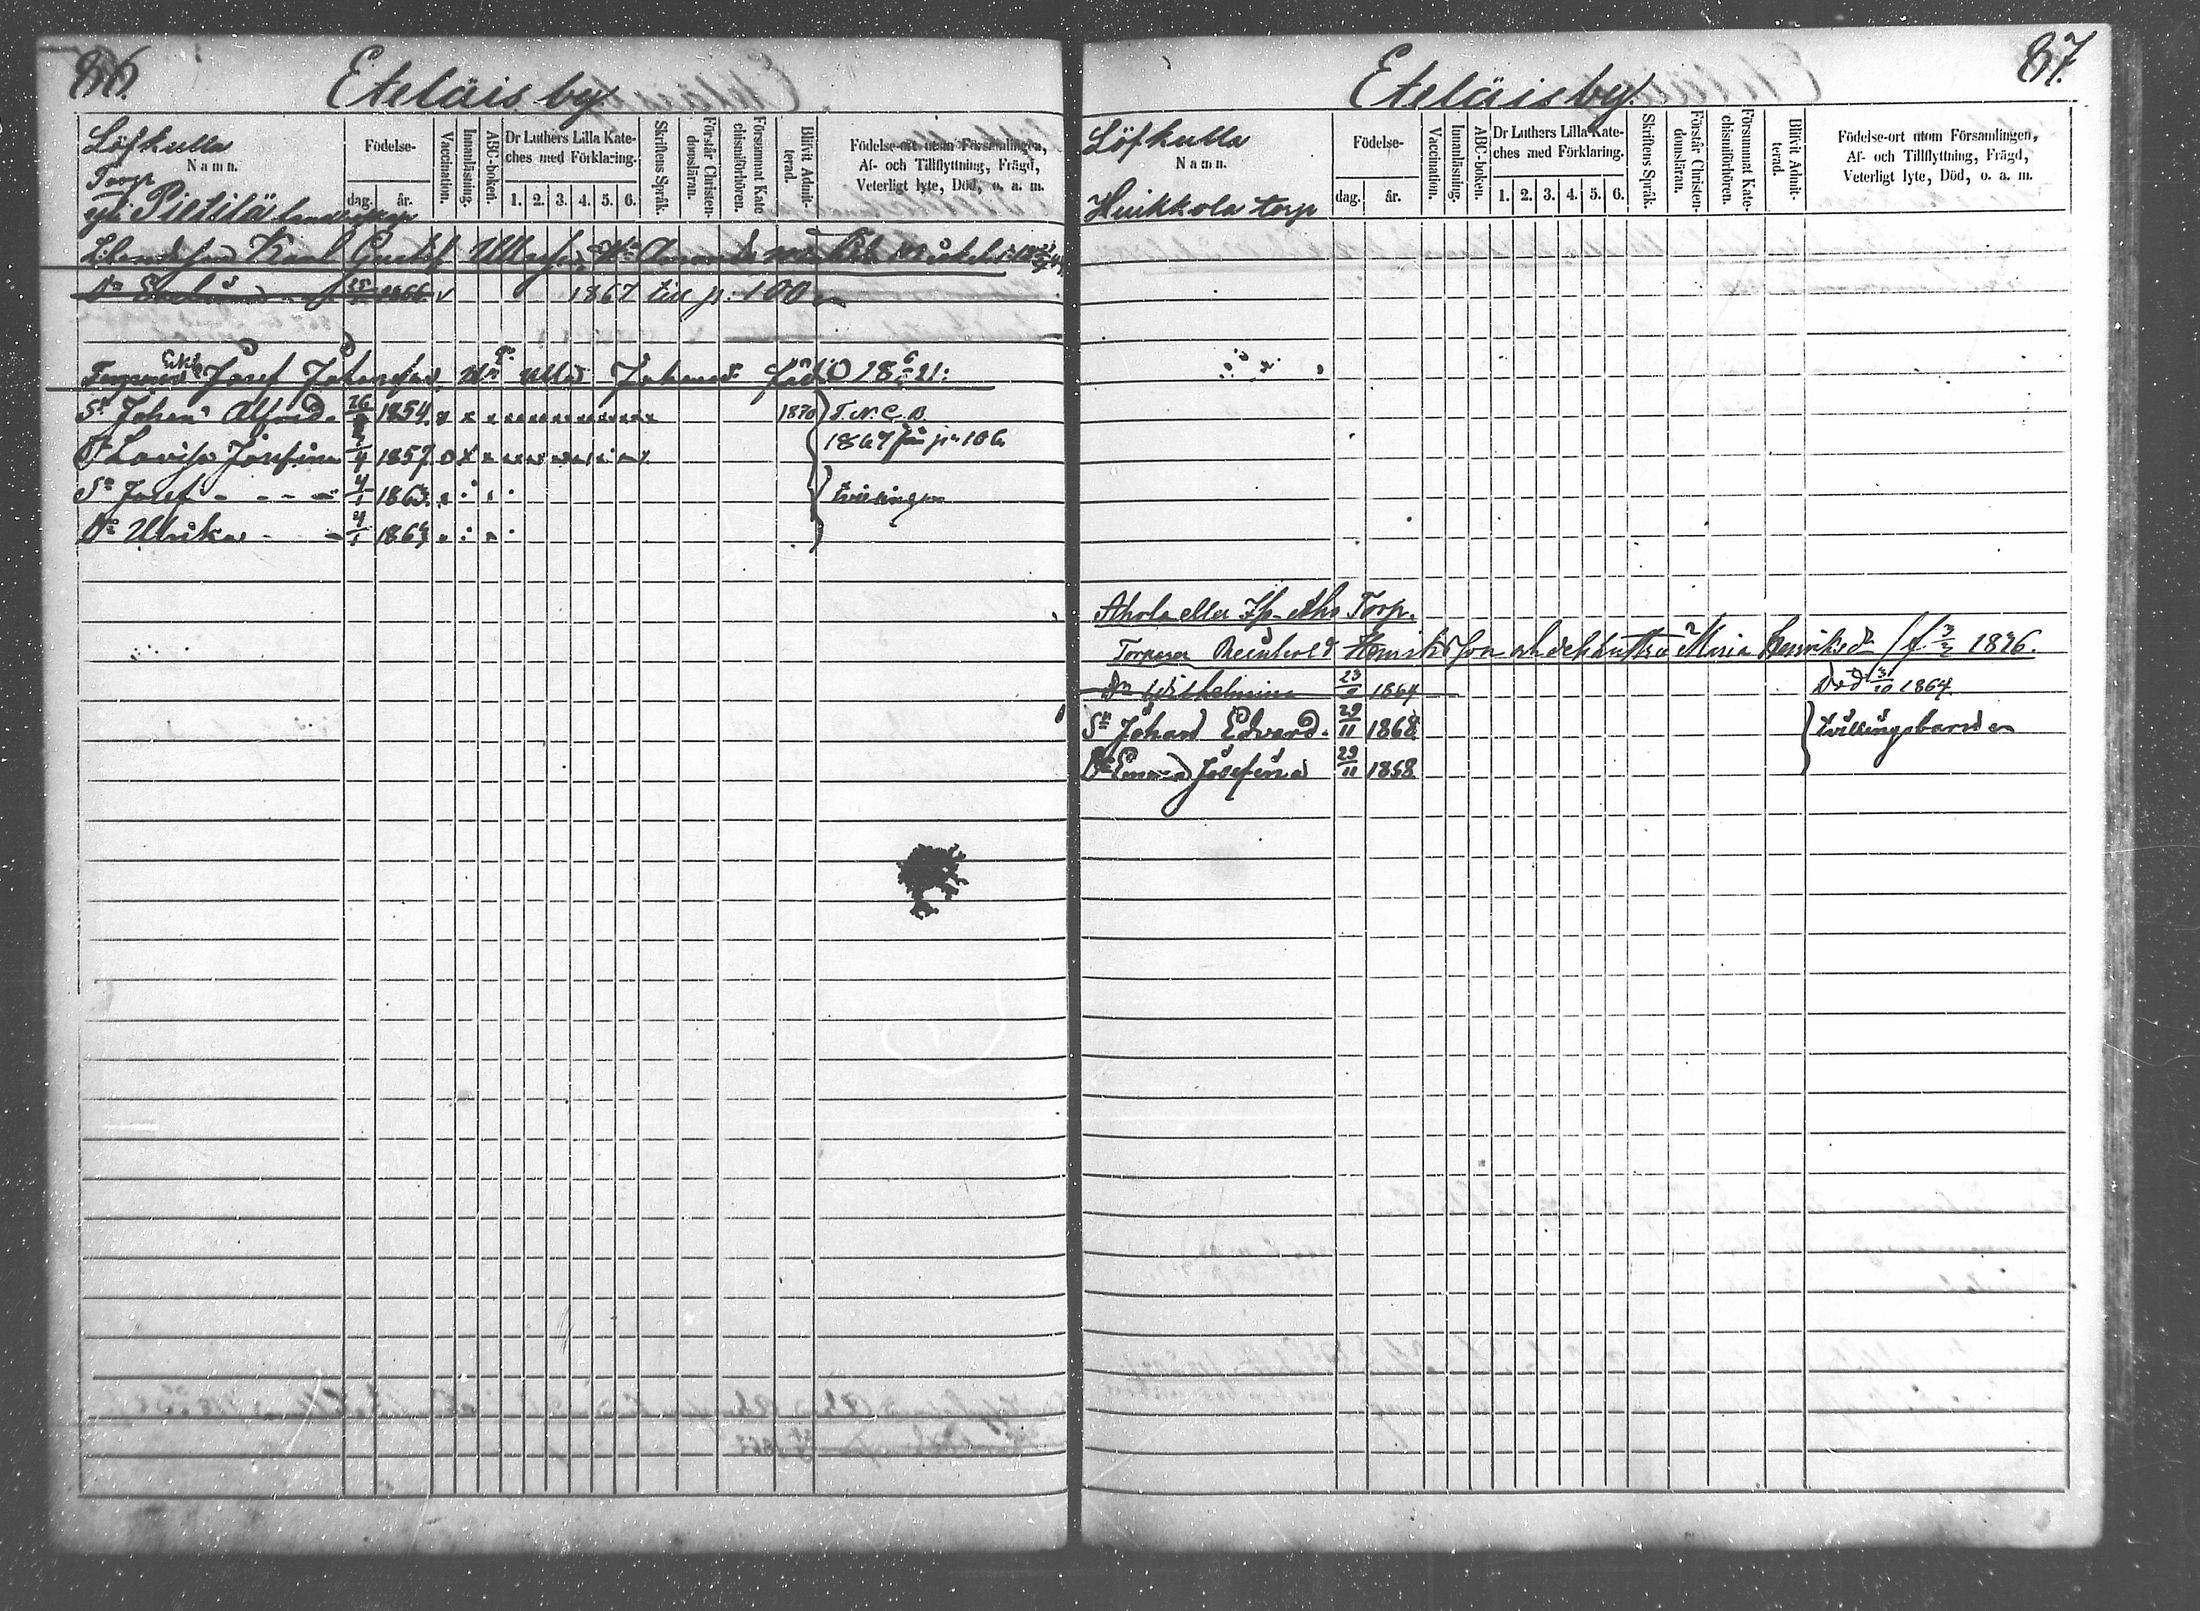 86.
Eteläis by
Löfkulla
Namn.
Torp
Födelse-
dag.
år.
Vaccination.
Innanläsning.
ABC-boken.
Dr Luthers Lilla Kate-
ches med Förklaring.
1. 2. 3. 4. 5. 6.
Skriftens Språk.
Förstår Christen-
domsläran.
Försummat Kate
chismiförhören.
Blifvit Admit-
terad.
Födelse-ort utom Församlingen,
Af- och Tillflyttning, Frägd,
Veterligt lyte, Död, o. a. m.
Pietilä
Karl Gustaf
25 1866 v 1867 till p. 100
Josef Johansson Ulla Johansd. född 18 21:
Sn Johan Alfred 26 1854 1870 T.N.C.B.
1867 från p. 106
Dr Lovisa Josefina 4 1857
Sn Josef 4/1 1863 tvillingar
Dr Ulrika 4/1 1863
87.
Eteläis by.
Löfkulla
Namn.
Huikkola torp
Födelse-
dag.
år.
Vaccination.
Innanläsning.
ABC-boken.
Dr Luthers Lilla Kate-
ches med Förklaring.
1. 2. 3. 4. 5. 6.
Skriftens Språk.
Förstår Christen-
domsläran.
Försummat Kate-
chismiförhören.
Blifvit Admit-
terad.
Födelse-ort utom Församlingen,
Af- och Tillflyttning, Frägd,
Veterligt lyte, Död, o. a. m.
Ahola eller Torp.
Torparen Reinhold Henriksson och dess hustru Maria Henriksdr 1836.
Dr Wilhelmina 23 1864 Död 31/10 1864
Sn Johan Edvard. 29/11 1868 tvillingbarnen
Dr Emma Josefina 29/11 1868